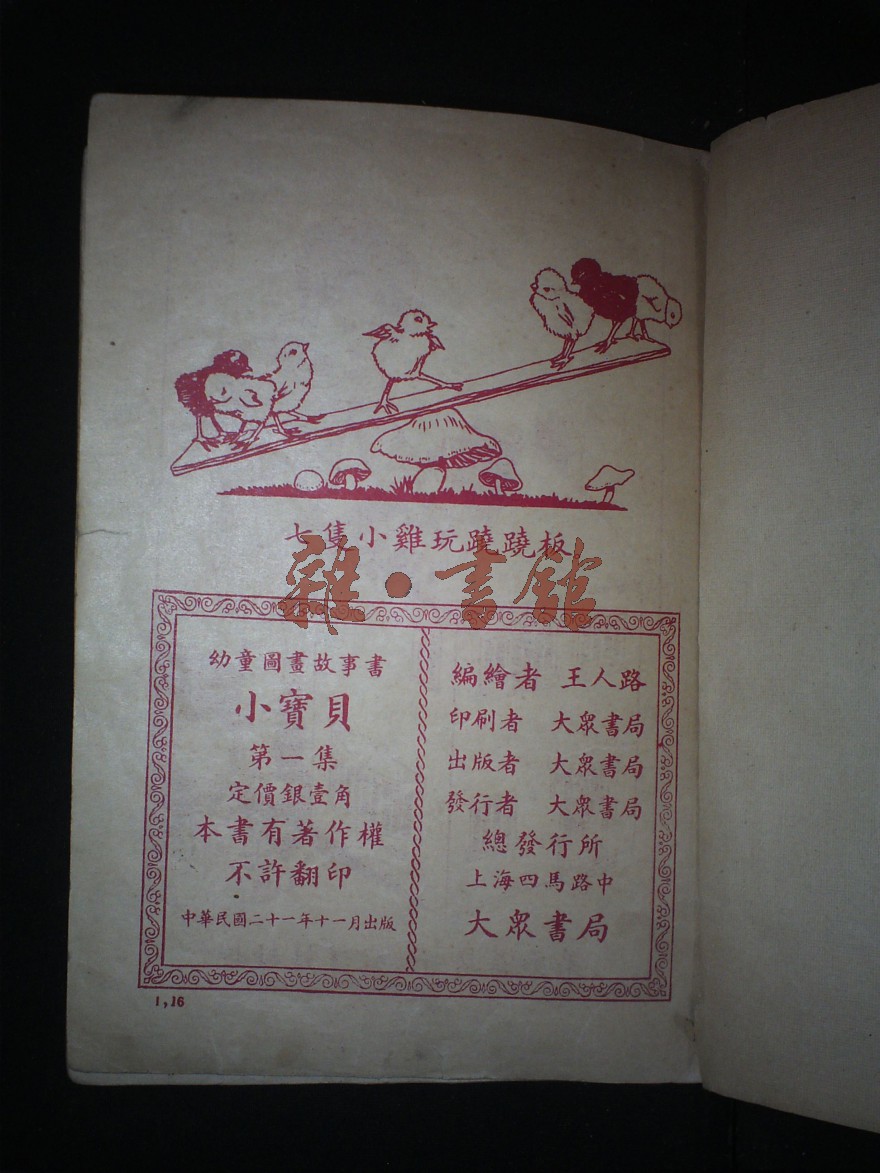 七隻小雞玩蹺蹺板
雜·書館
幼童圖畫故事書
小寶貝
第一集
定價銀壹角
本書有著作權
不許翻印
中華民國二十一年十一月出版
編繪者 王人路
印刷者 大眾書局
出版者 大眾書局
發行者 大眾書局
總發行所
上海四馬路中
大眾書局
1,16